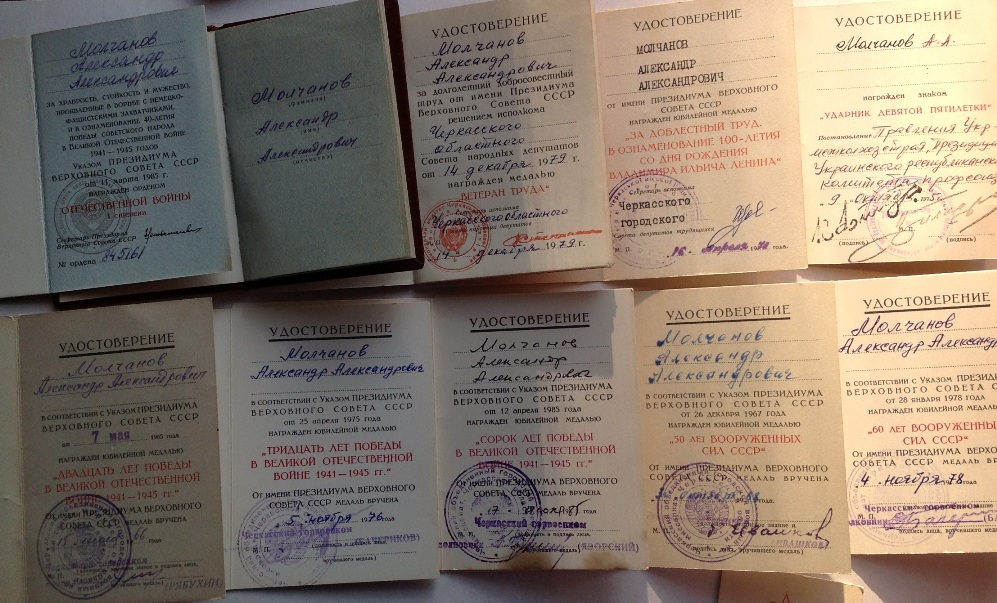 Молчанов
Александр
Александрович
ЗА ХРАБРОСТЬ, СТОЙКОСТЬ И МУЖЕСТВО,
ПРОЯВЛЕННЫЕ В БОРЬБЕ С НЕМЕЦКО-
ФАШИСТСКИМИ ЗАХВАТЧИКАМИ,
И В ОЗНАМЕНОВАНИЕ 40-ЛЕТИЯ
ПОБЕДЫ СОВЕТСКОГО НАРОДА
В ВЕЛИКОЙ ОТЕЧЕСТВЕННОЙ ВОЙНЕ
1941—1945 ГОДОВ
Указом ПРЕЗИДИУМА
ВЕРХОВНОГО СОВЕТА СССР
от 11 марта 1985 г.
НАГРАЖДЕН ОРДЕНОМ
ОТЕЧЕСТВЕННОЙ ВОЙНЫ
I степени
Секретарь Президиума
Верховного Совета СССР
№ ордена
Молчанов
(фамилия)
Александр
(имя)
Александрович
(отчество)
УДОСТОВЕРЕНИЕ
Молчанов
Александр
Александрович
за долголетний добросовестный
труд от имени Президиума
Верховного Совета СССР
решением исполкома
Черкасского
областного
Совета народных депутатов
от 14 декабря 1979 г.
награжден медалью
"ВЕТЕРАН ТРУДА"
Секретарь исполкома
Черкасского областного
Совета народных депутатов
14 декабря 1979 г.
УДОСТОВЕРЕНИЕ
МОЛЧАНОВ
АЛЕКСАНДР
АЛЕКСАНДРОВИЧ
ОТ ИМЕНИ ПРЕЗИДИУМА ВЕРХОВНОГО
СОВЕТА СССР
НАГРАЖДЕН ЮБИЛЕЙНОЙ МЕДАЛЬЮ
„ЗА ДОБЛЕСТНЫЙ ТРУД.
В ОЗНАМЕНОВАНИЕ 100-ЛЕТИЯ
СО ДНЯ РОЖДЕНИЯ
ВЛАДИМИРА ИЛЬИЧА ЛЕНИНА"
Секретарь исполкома
Черкасского
городского
Совета депутатов трудящихся
М. П. 16 апреля 1970 года
УДОСТОВЕРЕНИЕ
Молчанов А. А.
награжден знаком
"УДАРНИК ДЕВЯТОЙ ПЯТИЛЕТКИ"
Постановление Правления Укр
Президиума
Украинского республиканского
комитета профсоюза
М. П.
(подпись) (подпись)
УДОСТОВЕРЕНИЕ
Молчанов
Александр Александрович
В СООТВЕТСТВИИ С УКАЗОМ ПРЕЗИДИУМА
ВЕРХОВНОГО СОВЕТА СССР
от 7 мая 1965 года
НАГРАЖДЕН ЮБИЛЕЙНОЙ МЕДАЛЬЮ
„ДВАДЦАТЬ ЛЕТ ПОБЕДЫ
В ВЕЛИКОЙ ОТЕЧЕСТВЕННОЙ
ВОЙНЕ 1941—1945 гг."
От имени ПРЕЗИДИУМА ВЕРХОВНОГО
СОВЕТА СССР МЕДАЛЬ ВРУЧЕНА
(РЯБУХИН)
УДОСТОВЕРЕНИЕ
Молчанов
Александр Александрович
В СООТВЕТСТВИИ С УКАЗОМ ПРЕЗИДИУМА
ВЕРХОВНОГО СОВЕТА СССР
от 25 апреля 1975 года
НАГРАЖДЕН ЮБИЛЕЙНОЙ МЕДАЛЬЮ
„ТРИДЦАТЬ ЛЕТ ПОБЕДЫ
В ВЕЛИКОЙ ОТЕЧЕСТВЕННОЙ
ВОЙНЕ 1941—1945 гг."
От имени ПРЕЗИДИУМА ВЕРХОВНОГО
СОВЕТА СССР МЕДАЛЬ ВРУЧЕНА
5 ноября 1976 года
Черкасский горвоенком
М. П.
УДОСТОВЕРЕНИЕ
Молчанов
Александр
Александрович
В СООТВЕТСТВИИ С УКАЗОМ ПРЕЗИДИУМА
ВЕРХОВНОГО СОВЕТА СССР
от 12 апреля 1985 года
НАГРАЖДЕН ЮБИЛЕЙНОЙ МЕДАЛЬЮ
„СОРОК ЛЕТ ПОБЕДЫ
В ВЕЛИКОЙ ОТЕЧЕСТВЕННОЙ
ВОЙНЕ 1941—1945 гг."
От имени ПРЕЗИДИУМА ВЕРХОВНОГО
СОВЕТА СССР МЕДАЛЬ ВРУЧЕНА
Черкасский горвоенком
(ЯВОРСКИЙ)
УДОСТОВЕРЕНИЕ
Молчанов
Александр
Александрович
В СООТВЕТСТВИИ С УКАЗОМ ПРЕЗИДИУМА
ВЕРХОВНОГО СОВЕТА СССР
от 26 ДЕКАБРЯ 1967 ГОДА
НАГРАЖДЕН ЮБИЛЕЙНОЙ МЕДАЛЬЮ
„50 ЛЕТ ВООРУЖЕННЫХ
СИЛ СССР"
От имени ПРЕЗИДИУМА ВЕРХОВНОГО
СОВЕТА СССР МЕДАЛЬ ВРУЧЕНА
М. П.
УДОСТОВЕРЕНИЕ
Молчанов
Александр Александрович
В СООТВЕТСТВИИ С УКАЗОМ ПРЕЗИДИУМА
ВЕРХОВНОГО СОВЕТА СССР
от 28 января 1978 года
НАГРАЖДЕН ЮБИЛЕЙНОЙ МЕДАЛЬЮ
„60 ЛЕТ ВООРУЖЕННЫХ
СИЛ СССР"
От имени ПРЕЗИДИУМА ВЕРХОВНОГО
СОВЕТА СССР МЕДАЛЬ ВРУЧЕНА
4 ноября 1978 года
Черкасский горвоенком